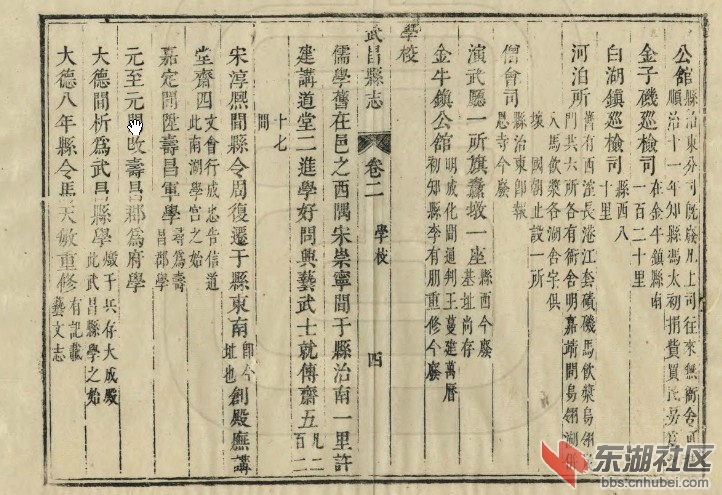 公館縣治東分司旣廢凡上司往來無衙舍可
順治十一年知縣馮太初捐貲買民房
金子磯巡檢司在金牛鎮縣南一百二十里
白湖鎮巡檢司縣西八十里
河泊所舊有西長港江套磧磯馬飲烏翎
門共六所各有衙舍明嘉靖間烏翎湖併
入馬飲槳各湖舍字俱
壊國朝止設一所
僧會司縣治東卽報恩寺今廢
演武廳一所旗纛墩一座縣西今廢基址尚存
金牛鎮公館明成化間通判王蔓建萬曆初知縣李有朋重修今廢
學校
武昌縣志 卷二 學校 四
儒學舊在邑之西隅宋崇寧間于縣治南一里許
建講道堂二進學好問興藝武士就傳齋五凡二百二
十七間
宋淳熈間縣令周復遷于縣東南卽今址也創殿廡講
堂齋四文會行成忠告信道此南湖學宮之始
嘉定間陞壽昌軍學尋爲壽昌郡學
元至元間改壽昌郡爲府學
大德間析爲武昌縣學燬于兵存大成殿此武昌縣學之始
大德八年縣令馬天敏重修有記載藝文志
东湖社区
bbs.cnhubei.com